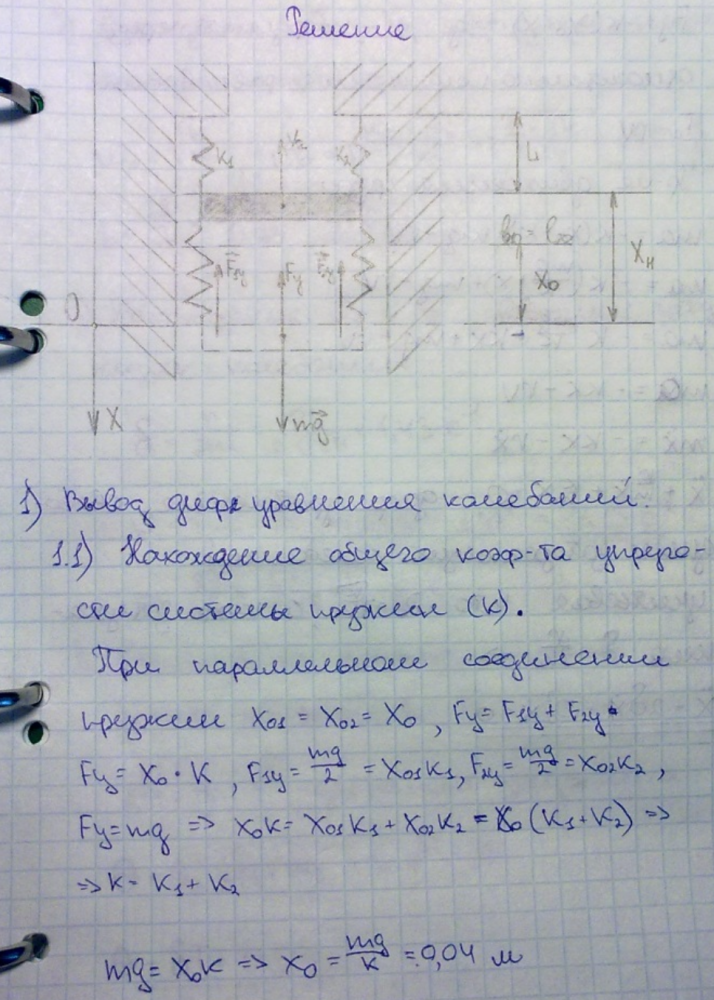 Решение
K₁
K₂
L₁
l₀₁ = l₀₂
Xн
X₀
F₁у
Fу
F₂у
O
X
mg
1) Вывод диф уравнения колебаний.
1.1) Нахождение общего коэф-та упруго-
сти системы пружин (K).
При параллельном соединении
пружин X₀₁ = X₀₂ = X₀, Fу = F₁у + F₂у
Fу = X₀ · K, F₁у = mg/2 = X₀₁K₁, F₂у = mg/2 = X₀₂K₂,
Fу = mg => X₀K = X₀₁K₁ + X₀₂K₂ = X₀(K₁ + K₂) =>
=> K = K₁ + K₂
mg = X₀K => X₀ = mg/K = 0,04 м